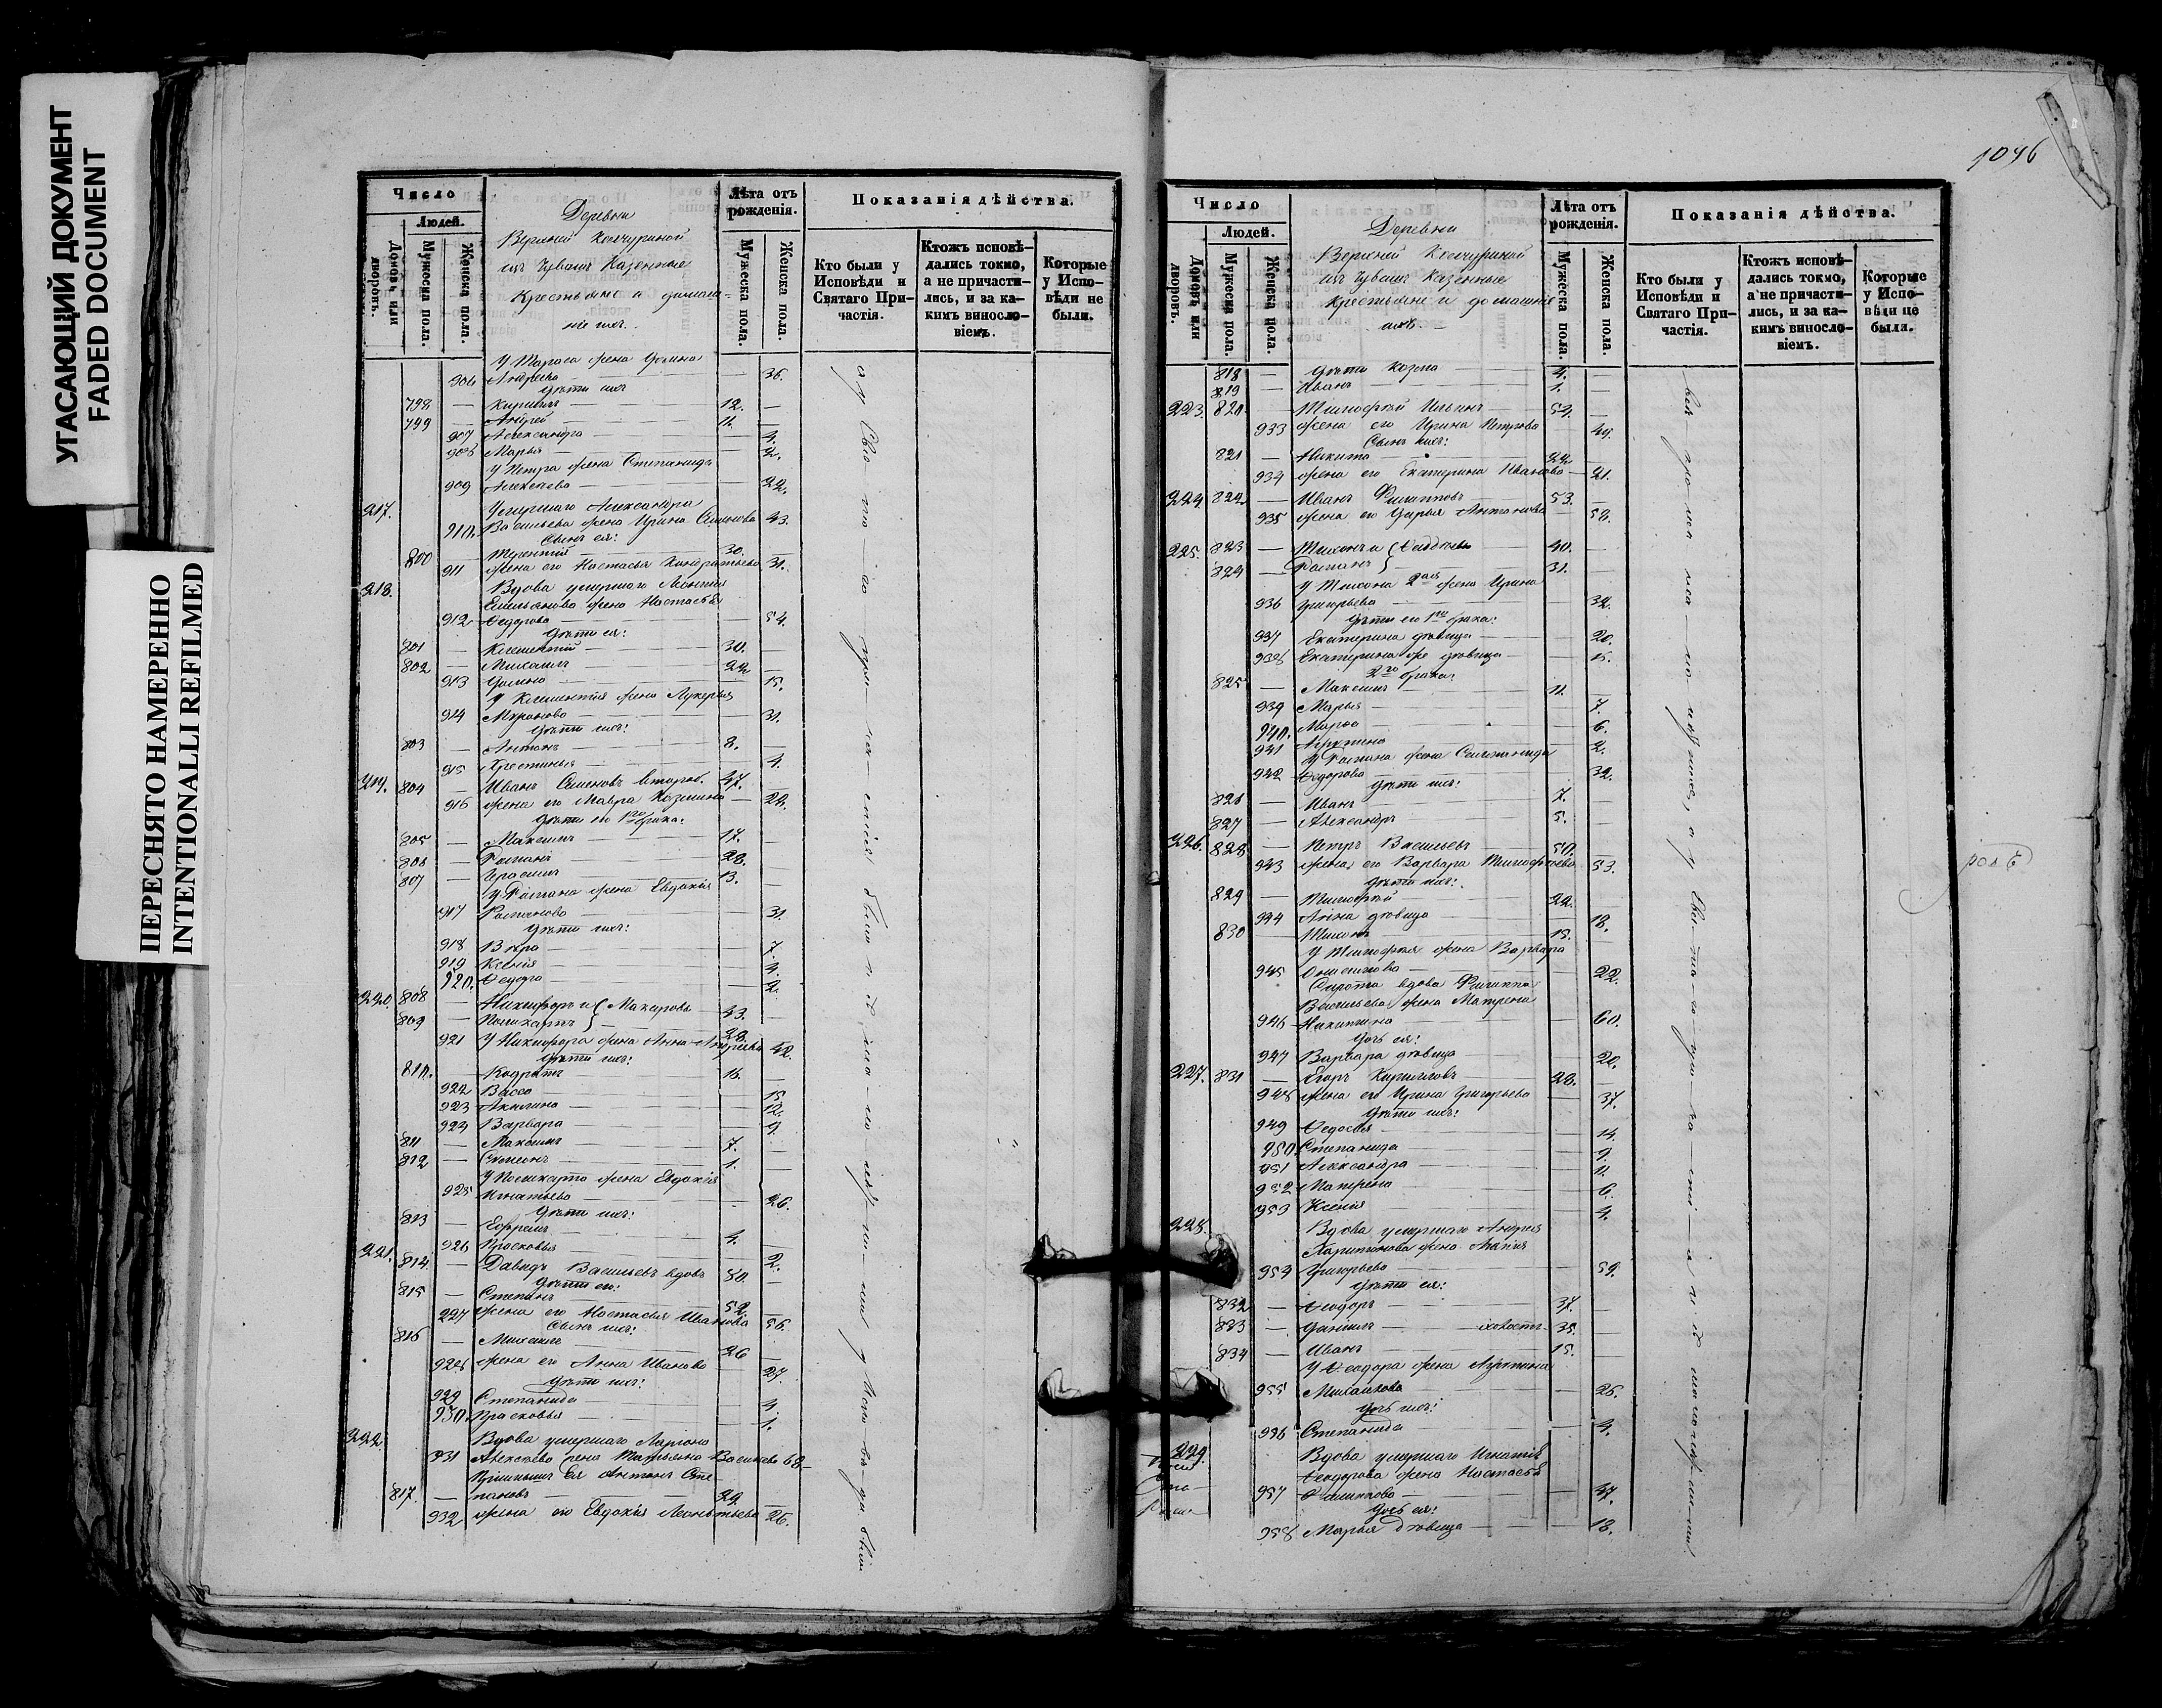 УГАСАЮЩИЙ ДОКУМЕНТ
FADED DOCUMENT
ПЕРЕСНЯТО НАМЕРЕННО
INTENTIONALLI REFILMED
Число
Людей.
Домовъ или дворовъ.
Мужеска пола.
Женска пола.
Деревни
Верхней
изъ Чувашъ Казенные
Крестьяне и домаш-
ніе ихъ.
Лѣта отъ рожденія.
Мужеска пола.
Женска пола.
Показанія дѣйства.
Кто были у Исповѣди и Святаго При-частія.
Ктожъ исповѣ-дались токмо, а не причасти-лись, и за ка-кимъ винослo-віемъ.
Которые у Испо-вѣди не были.
У Тараса жена Ульяна
906 Андреева — 36.
дѣти ихъ
798 — Кириллъ — 12. —
799 — Андрей — 11. —
907 Александра — 4.
908 Марья — 2.
У Петра жена Степанида
909 Алексеева — 22.
217. Умершаго Александра
910. Васильева жена Ирина Семенова 43.
Сынъ ея:
800 — Терентій — 30. —
911 жена его Настасья Кондратьева 31.
218. Вдова умершаго Леонтія
Емельянова жена Настасья
912 Ѳедорова — 54.
дѣти ея:
801 — Климентій — 30. —
802 — Михаилъ — 22 —
913 Ульяна — 15.
У Климентія жена Лукерья
914 Миронова — 31.
дѣти ихъ:
803 — Антонъ — 8. —
915 Христинья — 4.
219. 804 — Иванъ Семеновъ второб. 47. —
916 жена его Мавра Козмина — 24.
дѣти его 1го брака:
805 — Максимъ — 17. —
806 — Романъ — 28. —
807 — Герасимъ — 13. —
У Романа жена Евдокія
917 Романова — 31.
дѣти ихъ:
918 Вѣра — 7.
919 Ксенія — 4.
920. Ѳедора — 2.
220. 808 — Никифоръ и Макаровы 43. —
809 — Поликарпъ — 28.
921 У Никифора жена Анна Андреева 42.
дѣти ихъ:
810. — Кодратъ — 16. —
922 Васса — 15
923 Акилина — 12.
924 Варвара — 9.
811 — Максимъ — 7. —
812 — Симеонъ — 1. —
У Поликарпа жена Евдокія
925 Игнатьева — 26.
дѣти ихъ:
813 — Ефремъ — 4.
926 Прасковья — 2.
221. 814. — Давыдъ Васильевъ вдовъ 80. —
дѣти его:
815 — Степанъ — 52. —
927 жена его Настасья Иванова 56.
Сынъ ихъ:
816 — Михаилъ — 26 —
928 жена его Анна Иванова — 27.
дѣти ихъ:
929 Степанида — 4.
930. Прасковья — 1.
222 Вдова умершаго Лариона
931 Алексеева жена Татьяна Васильева 68 —
Пріимышъ ея Антонъ Сте-
817. — пановъ — 29 —
932 жена его Евдокія Леонтьева 26.
1046
Число
Людей.
Домовъ или дворовъ.
Мужеска пола.
Женска пола.
Деревни
Верхней
изъ Чувашъ Казенные
Крестьяне и домашніе
ихъ.
Лѣта отъ рожденія.
Мужеска пола.
Женска пола.
Показанія дѣйства.
Кто были у Исповѣди и Святаго При-частія.
Ктожъ исповѣ-дались токмо, а не причасти-лись, и за ка-кимъ винослo-віемъ.
Которые у Испо-вѣди не были.
818 — дѣти Козма — 4. —
819 — Иванъ — 1. —
223. 820. — Тимофей Ильинъ 54. —
933 жена его Ирина Петрова — 49.
Сынъ ихъ:
821 — Никита — 22. —
934 жена его Екатерина Иванова — 21.
224. 822. — Иванъ Филипповъ 53. —
935 жена его Дарья Антонова — 58.
225. 823 — Тихонъ и Ѳаддѣевы 40. —
824 — Романъ — 31. —
У Тихона 2ая жена Ирина
936 Григорьева — 32.
дѣти его 1го брака:
937 Екатерина дѣвица — 20.
938 Екатерина же дѣвица — 15.
2го брака:
825 — Максимъ — 11. —
939 Марья — 7.
940. Марѳа — 6.
941 Агрипина — 2.
У Романа жена Соломонида
942 Ѳедорова — 32.
дѣти ихъ:
826 — Иванъ — 7. —
827 — Александръ — 5. —
226. 828 — Петръ Васильевъ 50. —
943 жена его Варвара Тимофеева 53.
дѣти ихъ:
829 — Тимофей — 22. —
944 Анна дѣвица — 18.
830 — Тихонъ — 15. —
У Тимофея жена Варвара
945 — 22.
Сирота вдова Филиппа
Васильева жена Матрена
946 Никитина — 60.
Дочь ея:
947 Варвара дѣвица — 20.
227. 831 — Егоръ Кирилловъ — 28. —
948 жена его Ирина Григорьева — 37.
дѣти ихъ:
949 Ѳедосья — 14.
950. Степанида — 9.
951 Александра — 11.
952 Матрена — 6.
953 Ксенія — 4.
228. Вдова умершаго Андрея
Харитонова жена
954 Григорьева — 59.
дѣти ея:
832 — Ѳеодоръ — 37. —
833 — Даніилъ — холостъ 35. —
834 — Иванъ — 15. —
У Ѳеодора жена Агрипина
955 Михайлова — 26.
Дочь ихъ:
956 Степанида — 4.
229. Вдова умершаго Игнатія
Ѳеодорова жена Настасья
957 Филиппова — 47.
Дочь ея:
958 Марья дѣвица — 18.